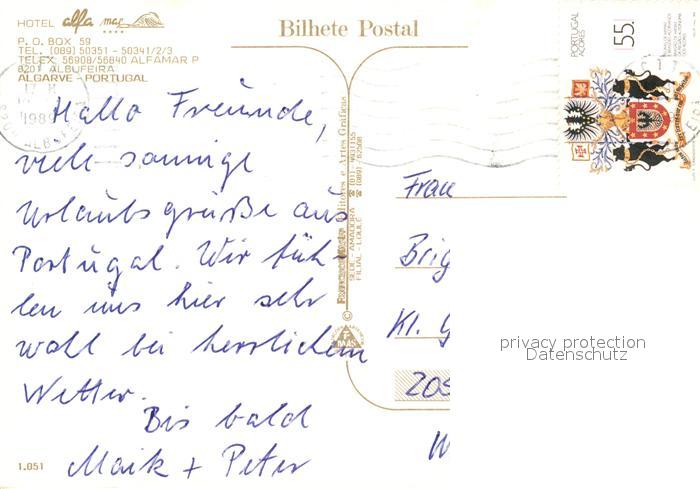 HOTEL alfa mar
P. O. BOX 59
TEL. (089) 50351 - 50341/2/3
TELEX 56908/56840 ALFAMAR P
8201 ALBUFEIRA
ALGARVE - PORTUGAL
Bilhete Postal
PORTUGAL
AÇORES
55.
1989
Hallo Freunde,
viele sonnige
Urlaubsgrüße aus
Portugal. Wir füh-
len uns hier sehr
wohl bei herrlichem
Wetter.
Bis bald
Maik + Peter
1.051
Editores e Artes Gráficas
SEDE - AMADORA
FILIAL - LOULÉ
Frau
Brig
Kl. G
205
W
privacy protection
Datenschutz